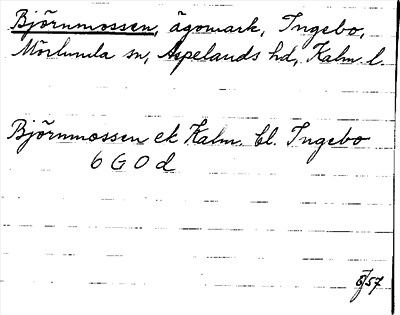 Björnmossen, ägomark, Ingebo,
Mörlunda sn, Aspelands hd, Kalm. l.
Björnmossen ek Kalm. bl. Ingebo
6 G 0 d
57